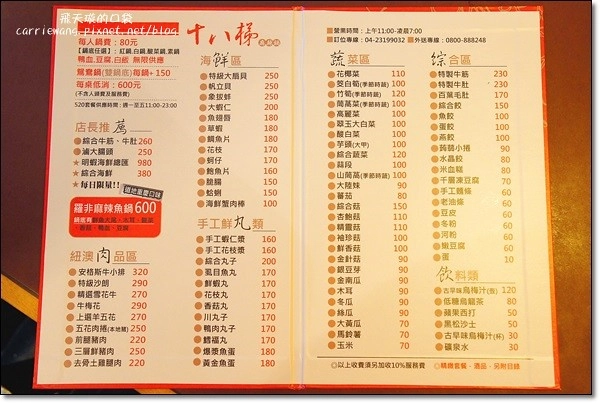 飛天璇的口袋
carriewang.pixnet.net/blog
十八梯
每人鍋費:80元
【鍋底任選】:紅鍋,白鍋,酸菜鍋,素鍋
鴨血,豆腐,白飯 無限供應
鴛鴦鍋(雙鍋底)每鍋+150
每桌低消:600元
(不含人鍋費及服務費)
520套餐供應時間:週一至五11:00-23:00
店長推薦
綜合牛筋、牛肚 260
滷大腸頭 250
★明蝦海鮮總匯 980
★綜合海鮮 380
★每日限量!!
道地重慶口味
羅非麻辣魚鍋600
紐澳肉品區
安格斯牛小排 320
特級沙朗 290
精選雪花牛 270
牛梅花 290
上選羊五花 270
五花肉捲(本地豬) 210
前腿豬肉 220
三層鮮豬肉 220
去骨土雞腿肉 220
海鮮區
特級大扇貝 250
帆立貝 250
象拔蚌 250
大蝦仁 200
魚翅唇 180
草蝦 180
鯛魚片 180
花枝 180
蚵仔 180
鮑魚片 150
脆腸 150
蛤蜊 150
海鮮蟹肉棒 100
手工鮮丸類
手工蝦仁漿 160
手工花枝漿 160
綜合丸子 200
虱目魚丸 170
鮮蝦丸 170
花枝丸 170
香菇丸 170
川丸子 170
鴨肉丸子 170
鱈福丸 170
爆漿魚蛋 180
黃金魚蛋 180
■營業時間:上午11:00-凌晨7:00
■訂位專線:04-23199032 ■外送專線:0800-888248
蔬菜區
花椰菜 110
茭白筍(季節時蔬) 120
竹筍(季節時蔬) 120
茼蒿菜(季節時蔬) 120
高麗菜 100
翠玉大白菜 100
酸白菜 100
芋頭(大甲) 100
綜合蔬菜 120
蒜苗 120
山茼萵(季節時蔬) 120
大陸妹 90
蕃茄 90
綜合菇 150
杏鮑菇 110
精靈菇 110
袖珍菇 110
鮮香菇 100
金針菇 90
銀豆芽 90
金南瓜 90
木耳 90
冬瓜 90
絲瓜 90
大黃瓜 70
馬鈴薯 70
玉米 70
綜合區
特製牛筋 230
特製牛肚 230
百葉毛肚 170
綜合餃 150
魚餃 100
蛋餃 100
燕餃 100
蒟蒻小捲 90
水晶餃 90
米血糕 80
千層凍豆腐 70
手工麵條 60
老油條 60
豆皮 60
冬粉 60
河粉 60
嫩豆腐 60
蛋 10
飲料類
古早味烏梅汁(壺) 120
低糖烏龍茶 80
蘋果西打 50
黑松沙士 50
古早味烏梅汁(杯) 30
礦泉水 30
◎以上收費須另加收10%服務費
◎精緻套餐、酒品、另附目錄